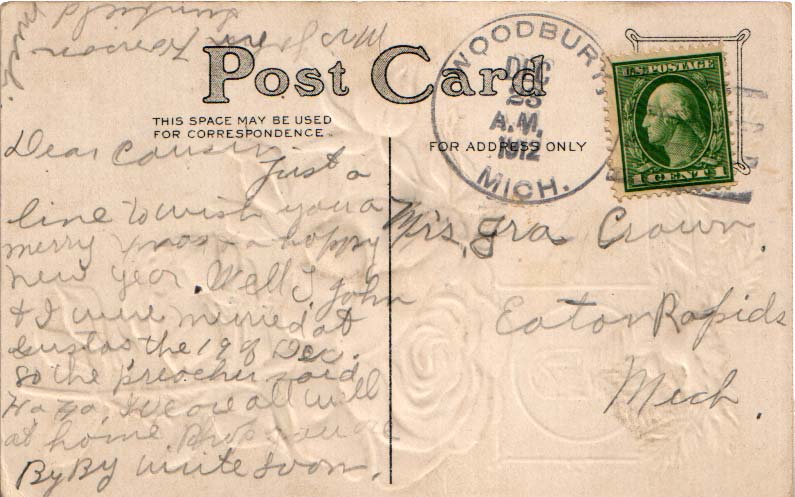 Post Card
THIS SPACE MAY BE USED
FOR CORRESPONDENCE.
FOR ADDRESS ONLY
WOODBURY
DEC
23
A.M.
1912
MICH.
U.S. POSTAGE
1 CENT 1
Dear Cousin
Just a
line to wish you a
merry xmas & a happy
new year. Well, John
& I were merried at
the 19 of Dec.
So the preacher said
Ha ha. We are all well
at home hope you are
By By write soon.
Mrs. Ira Crown.
Eaton Rapids
Mich.
Mrs John
Sunfield
Mich.